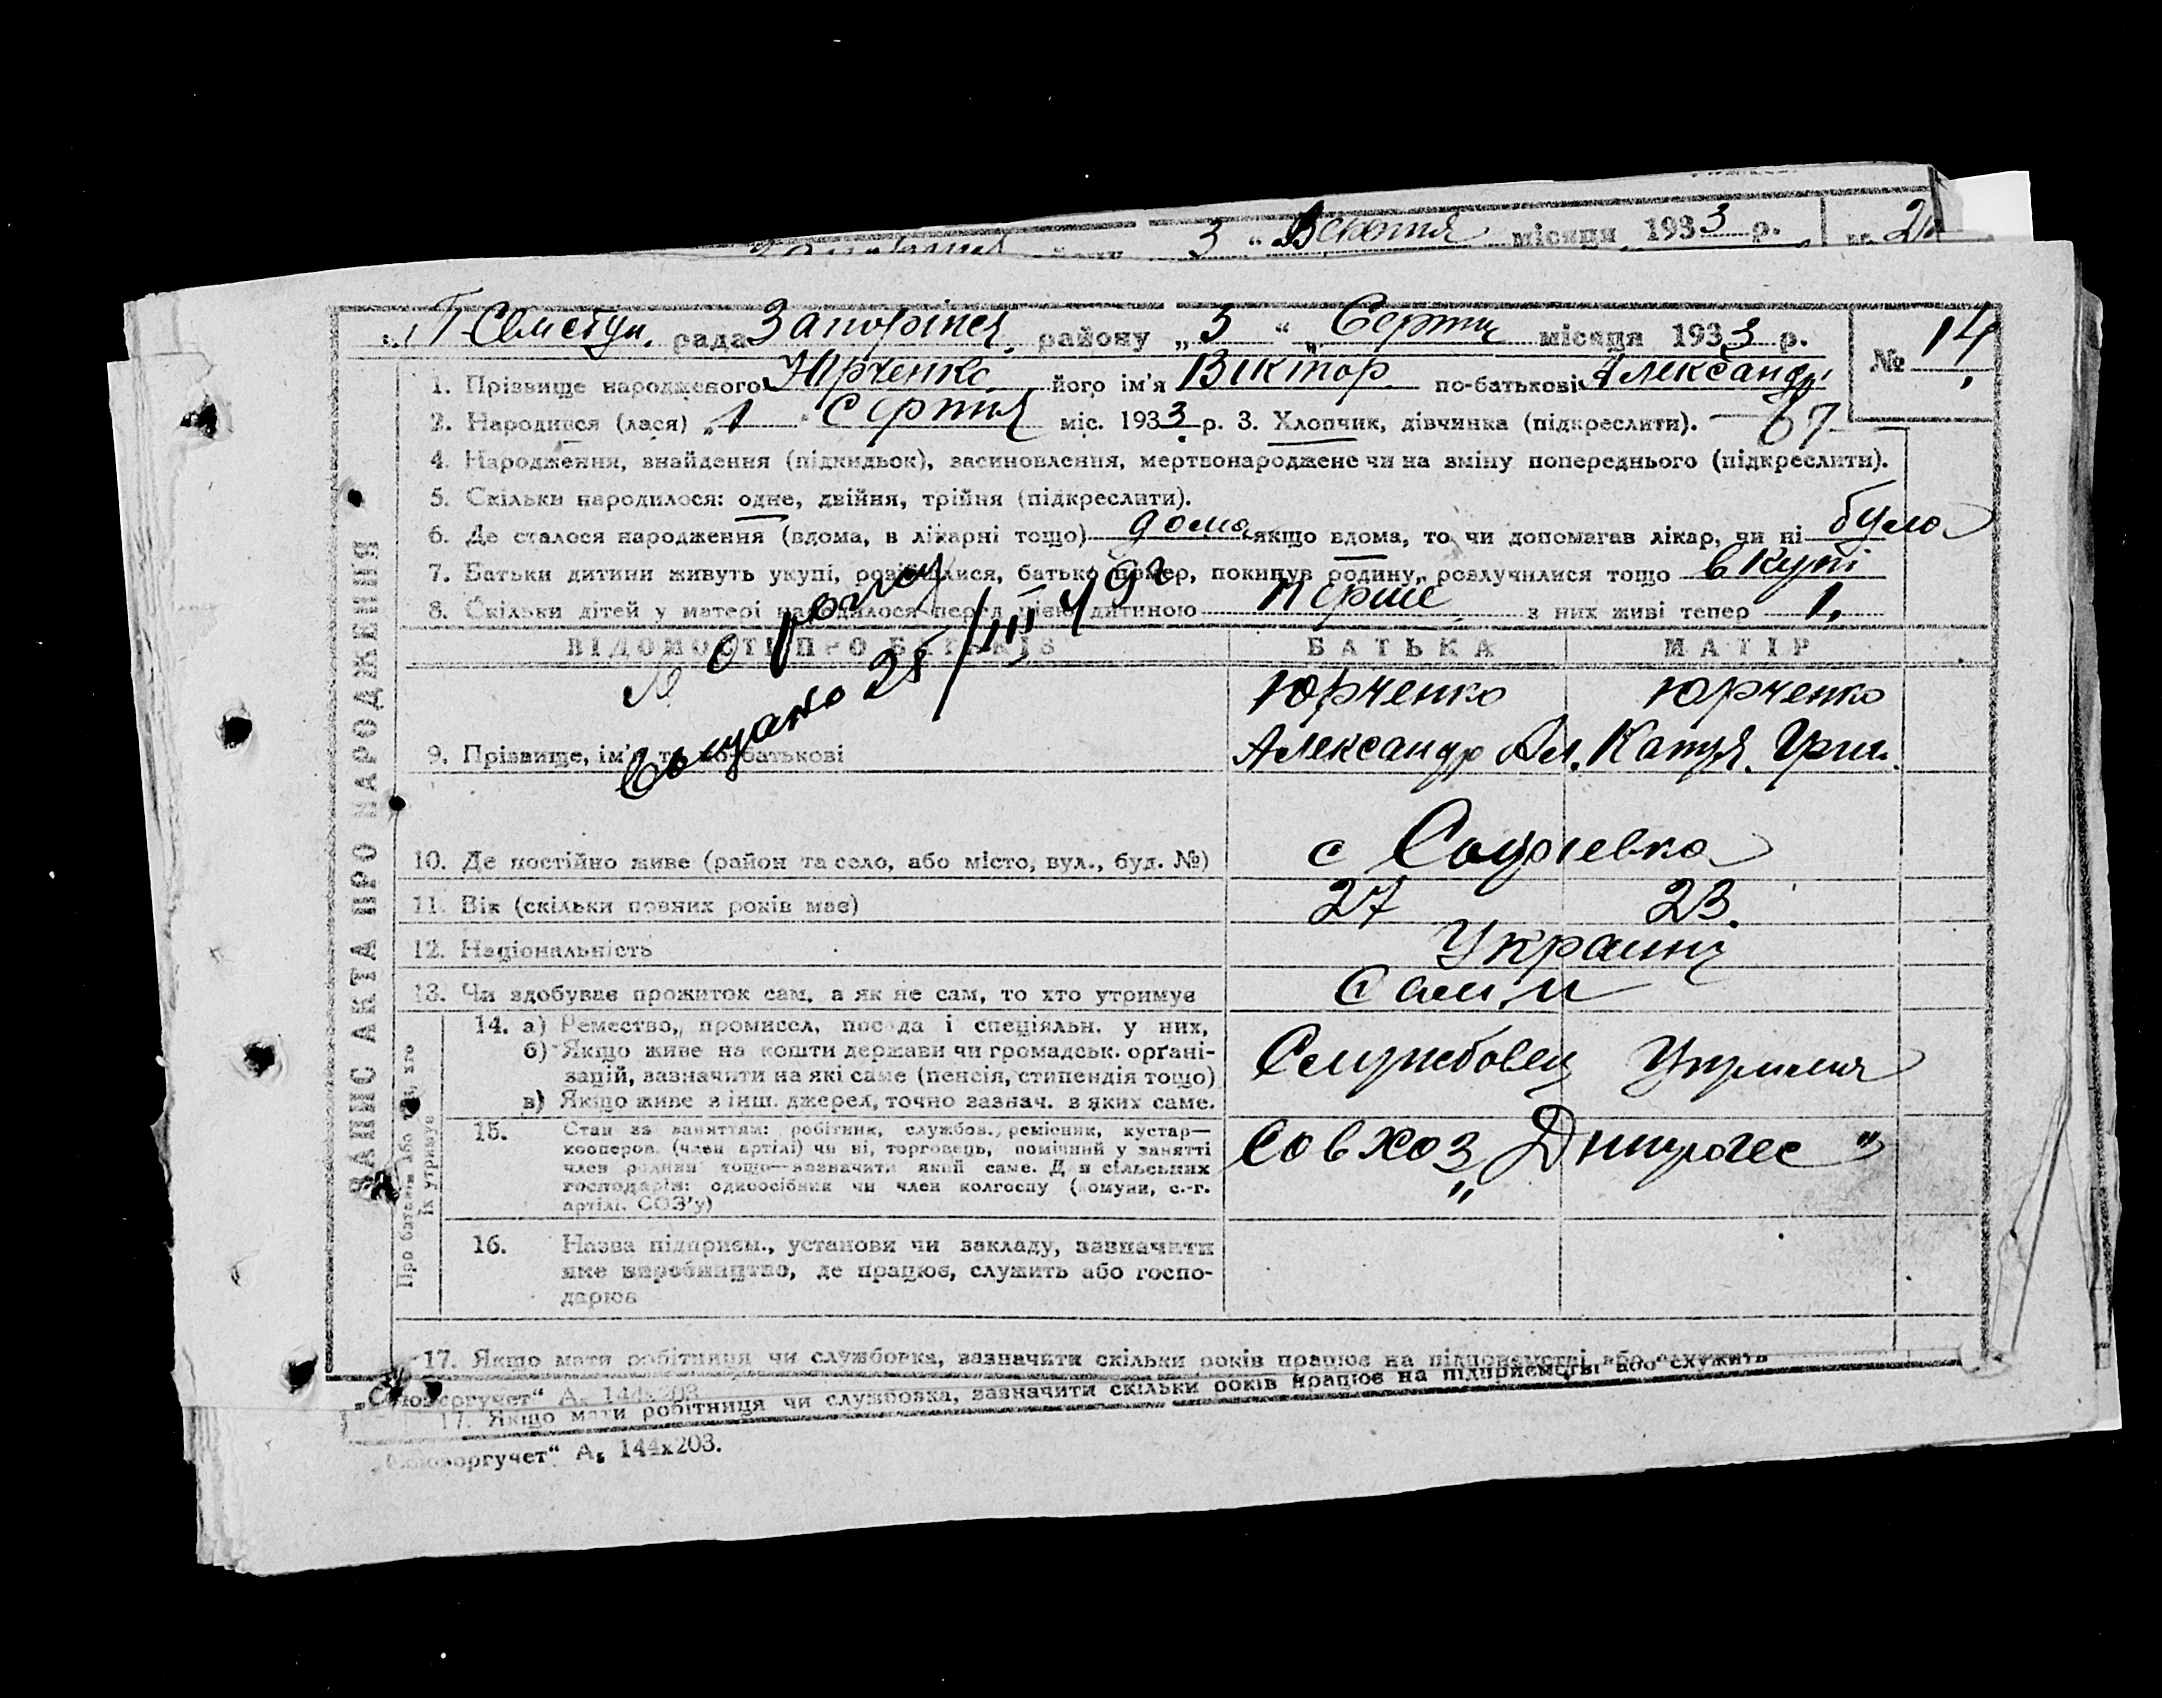 3 " місяця 1933 р. № 2
рада Запоріпся району „ 3 “ Серпня місяця 1933 р. № 14
1. Прізвище народженого Юрченко його ім'я Віктор по-батькові Александр
2. Народився (лася) „ 1 " Серпня міс. 1933 р. 3. Хлопчик, дівчинка (підкреслити). 67
4. Народження, знайдення (підкидьок), засиновлення, мертвонароджене чи на зміну попереднього (підкреслити).
5. Скільки народилося: одне, двійня, трійня (підкреслити).
6. Де сталося народження (вдома, в лікарні тощо) дома якщо вдома, то чи допомагав лікар, чи ні була
7. Батьки дитини живуть укупі, розійшлися, батько помер, покинув родину, розлучилися тощо вкупі
8. Скільки дітей у матері народилося перед цією дитиною перше з них живі тепер 1.
ВІДОМОСТІ ПРО БАТЬКІВ БАТЬКА МАТІР
Юрченко Юрченко
9. Прізвище, ім'я та по-батькові Александр Ал. Катря Григ.
10. Де постійно живе (район та село, або місто, вул., буд. №) с
11. Вік (скільки повних років має) 27 23.
12. Національність Украинц
13. Чи здобуває прожиток сам, а як не сам, то хто утримує Сам
14. а) Ремество, промисел, посада і спеціяльн. у них,
б) Якщо живе на кошти держави чи громадськ. орґані-
зацій, зазначити на які саме (пенсія, стипендія тощо)
в) Якщо живе з інш. джерел, точно зазнач. з яких саме.
Службовец
15. Стан за заняттям: робітник, службов., ремісник, кустар—
кооперов. (член артілі) чи ні, торговець, помічний у занятті
член родини тощо—зазначити який саме. Для сільських
господарів: одноосібник чи член колгоспу (комуни, с.-г.
артілі. СОЗ'у)
совхоз „Дніпрогес"
16. Назва підприєм., установи чи закладу, зазначити
яке виробництво, де працює, служить або госпо-
дарює
17. Якщо мати робітниця чи службовка, зазначити скільки років працює на підприємстві або служить
А₅ 144х203
17. Якщо мати робітниця чи службовка, зазначити скільки років працює на підприємстві або служить
А₅ 144х203.
ЗАПИС АКТА ПРО НАРОДЖЕННЯ
Про батьків або тих, хто
їх утримує
Выдано 25/III 49г